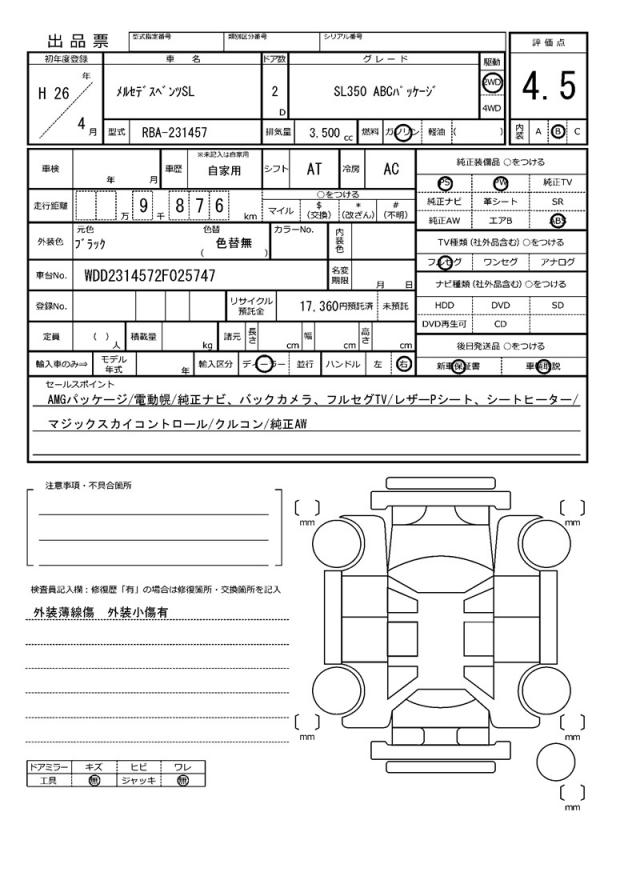 出品票 型式指定番号 類別区分番号 シリアル番号 評価点
初年度登録 車名 ドア数 グレード 駆動
H 26 年 4 月 メルセデスベンツSL 2 D SL350 ABCパッケージ 2WD 4WD 4.5
型式 RBA-231457 排気量 3,500 cc 燃料 ガソリン 軽油 ( ) 内装 A B C
車検 年 月 車歴 ※未記入は自家用 自家用 シフト AT 冷房 AC 純正装備品 ○をつける
PS PW 純正TV
走行距離 万 9 千 8 7 6 km ○をつける マイル $(交換) *(改ざん) #(不明) 純正ナビ 革シート SR
純正AW エアB ABS
外装色 元色 ブラック 色替 色替無 ( ) カラーNo. 内装色 TV種類 (社外品含む) ○をつける
フルセグ ワンセグ アナログ
車台No. WDD2314572F025747 名変期限 月 日 ナビ種類 (社外品含む) ○をつける
登録No. リサイクル預託金 17,360円預託済 未預託 HDD DVD SD
DVD再生可 CD
定員 ( ) 人 積載量 kg 諸元 長さ cm 幅 cm 高さ cm 後日発送品 ○をつける
輸入車のみ⇒ モデル年式 年 輸入区分 ディーラー 並行 ハンドル 左 右 新車保証書 車輌取説
セールスポイント
AMGパッケージ/電動幌/純正ナビ、バックカメラ、フルセグTV/レザーPシート、シートヒーター/
マジックスカイコントロール/クルコン/純正AW
注意事項・不具合箇所
mm mm
検査員記入欄：修復歴「有」の場合は修復箇所・交換箇所を記入
外装薄線傷 外装小傷有
mm mm
ドアミラー キズ ヒビ ワレ
工具 無 ジャッキ 無
mm